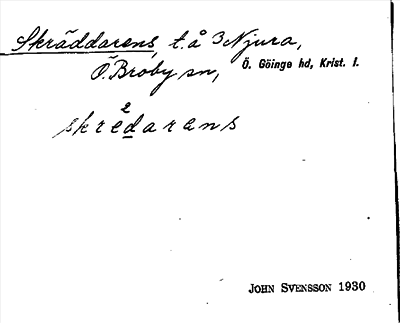 Skräddarens, t. å 3 Njura,
Ö. Broby sn, Ö. Göinge hd, Krist. l.
2
skredarens
JOHN SVENSSON 1930